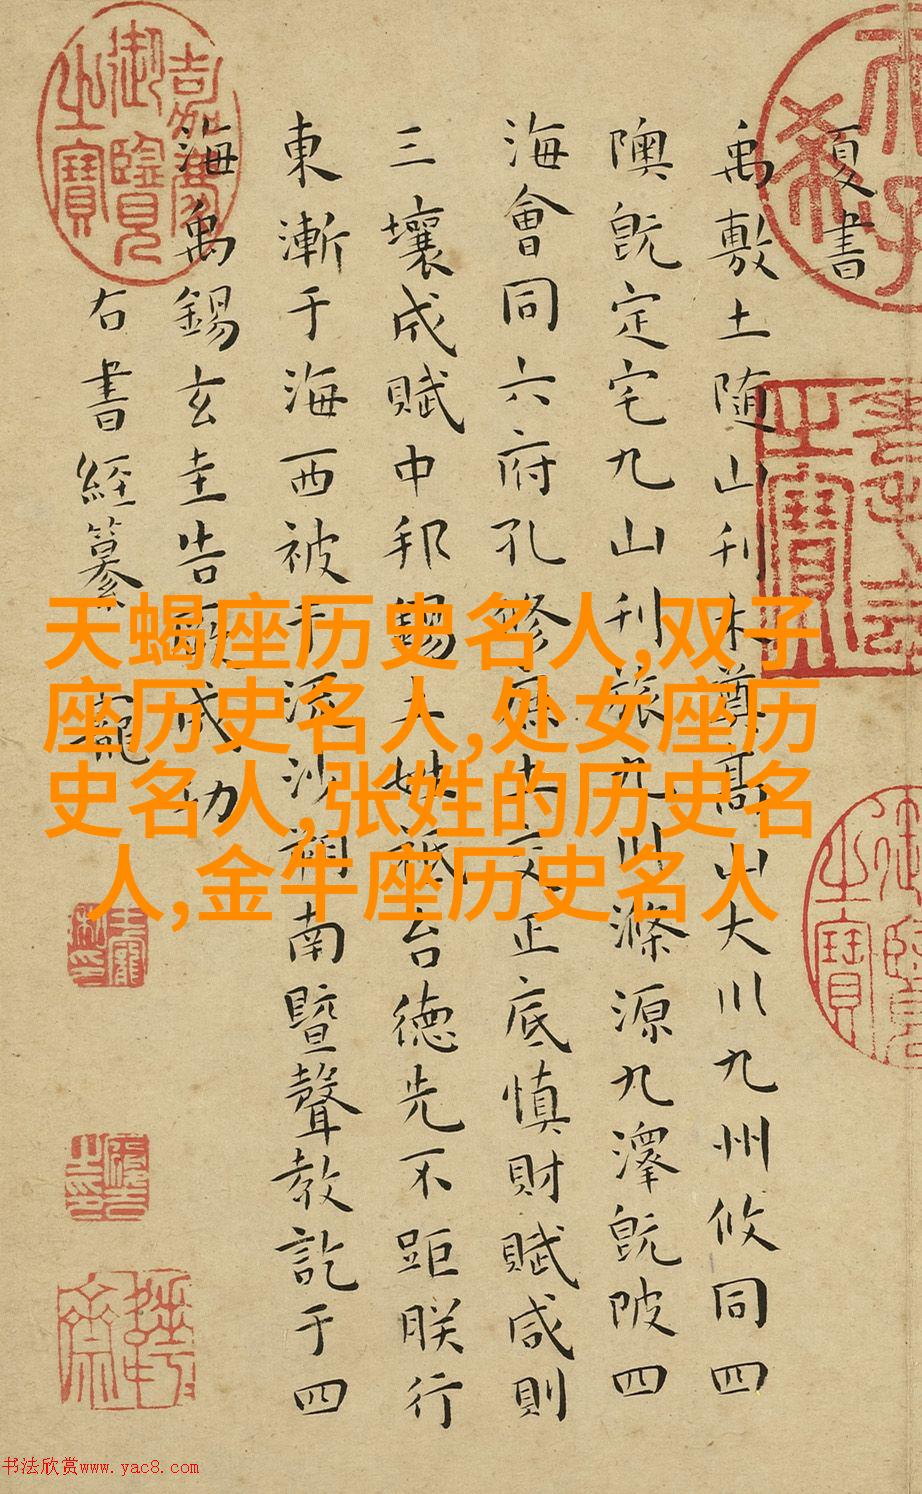 夏書
禹敷土随山刊木尊髙山大川九州攸同四
隩旣定宅九山刊旅九川滌源九澤旣陂四
海會同六府孔修庶土交正底慎財賦咸則
三壤成賦中邦錫土姓祗台德先不距朕行
東漸于海西被于流沙朔南暨聲教訖于四
海禹錫玄圭告厥成功
右書經纂
天蝎座历史名人,双子
座历史名人,处女座历
史名人,张姓的历史名
人,金牛座历史名人
嘉慶御覽之寶
御覽之寶
书法欣赏www.yac8.com